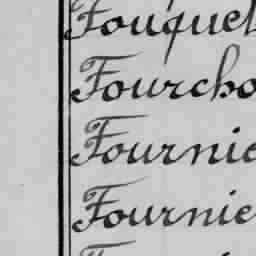 Fouquet
Fourcho
Fournie
Fournie